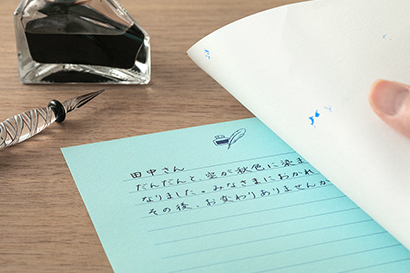 田中さん
だんだんと、空が秋色に染ま
なりました。みなさまにおかれ
その後、お変わりありませんか